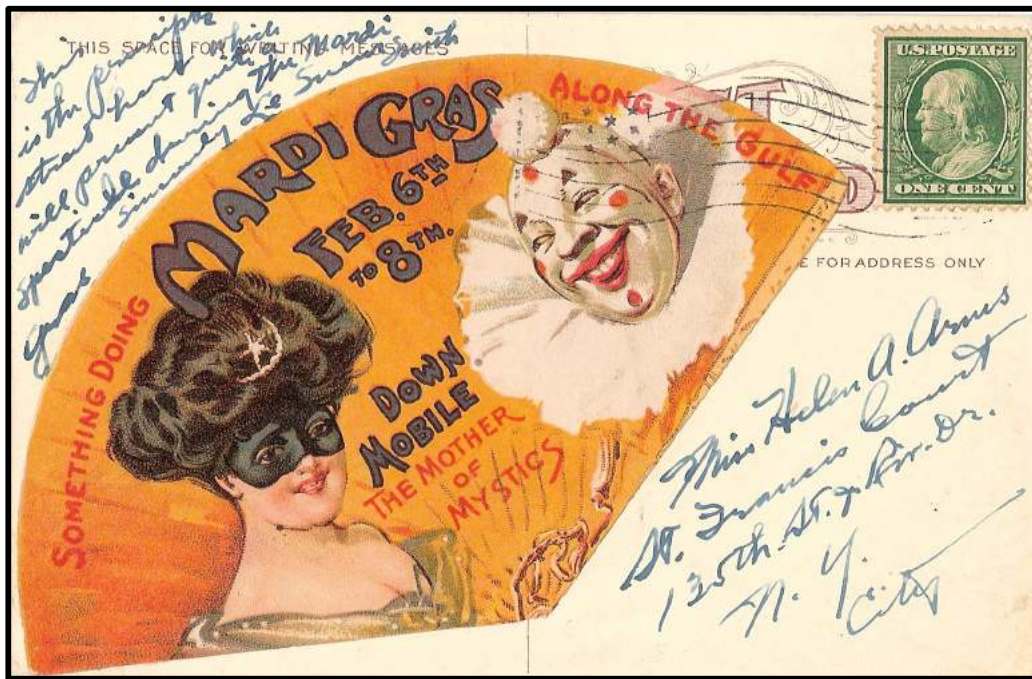 THIS SPACE FOR WRITING MESSAGES
This
is the principal
street
will present quite a
during the Mardi
Gras
Sincerely
SOMETHING DOING
MARDI GRAS
FEB. 6TH
TO 8TH.
ALONG THE GULF
DOWN
MOBILE
THE MOTHER
OF
MYSTICS
U.S. POSTAGE
ONE CENT
E FOR ADDRESS ONLY
Miss Helen A.
St. Francis Court
St. & Riv. Dr.
N. Y.
City